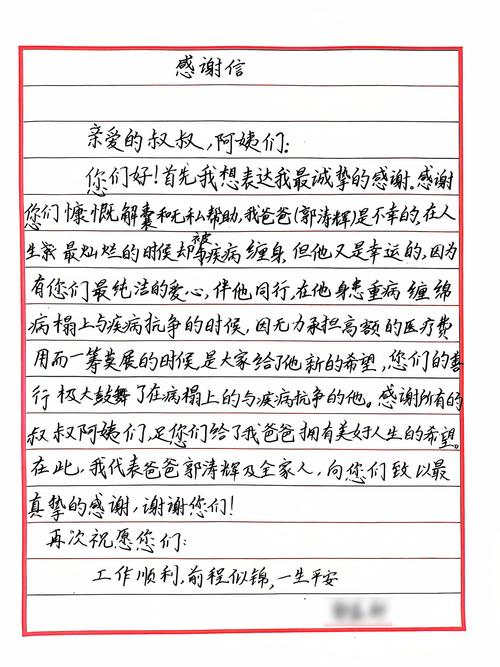 感谢信
亲爱的叔叔,阿姨们:
您们好!首先我想表达我最诚挚的感谢.感谢
您们慷慨解囊和无私帮助,我爸爸(郭涛辉)是不幸的,在人
生最灿烂的时候却被疾病缠身,但他又是幸运的,因为
有您们最纯洁的爱心,伴他同行,在他身患重病缠绵
病榻上与疾病抗争的时候,因无力承担高额的医疗费
用而一筹莫展的时候,是大家给了他新的希望,您们的善
行极大鼓舞了在病榻上的与疾病抗争的他。感谢所有的
叔叔阿姨们,是您们给了我爸爸拥有美好人生的希望。
在此,我代表爸爸郭涛辉及全家人,向您们致以最
真挚的感谢,谢谢您们!
再次祝愿您们:
工作顺利,前程似锦,一生平安